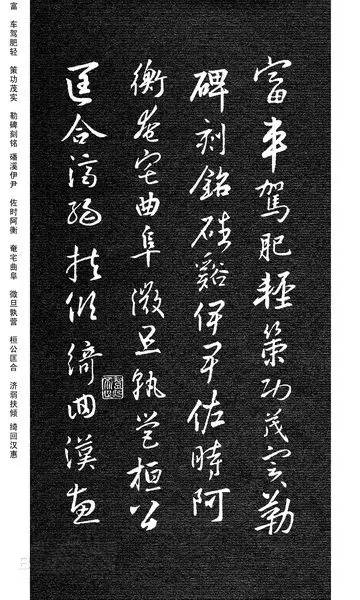 富車駕肥輕策功茂實勒
碑刻銘磻谿伊尹佐時阿
衡奄宅曲阜微旦孰營桓公
匡合濟弱扶傾綺回漢惠
富 车驾肥轻 策功茂实 勒碑刻铭 磻溪伊尹 佐时阿衡 奄宅曲阜 微旦孰营 桓公匡合 济弱扶倾 绮回汉惠